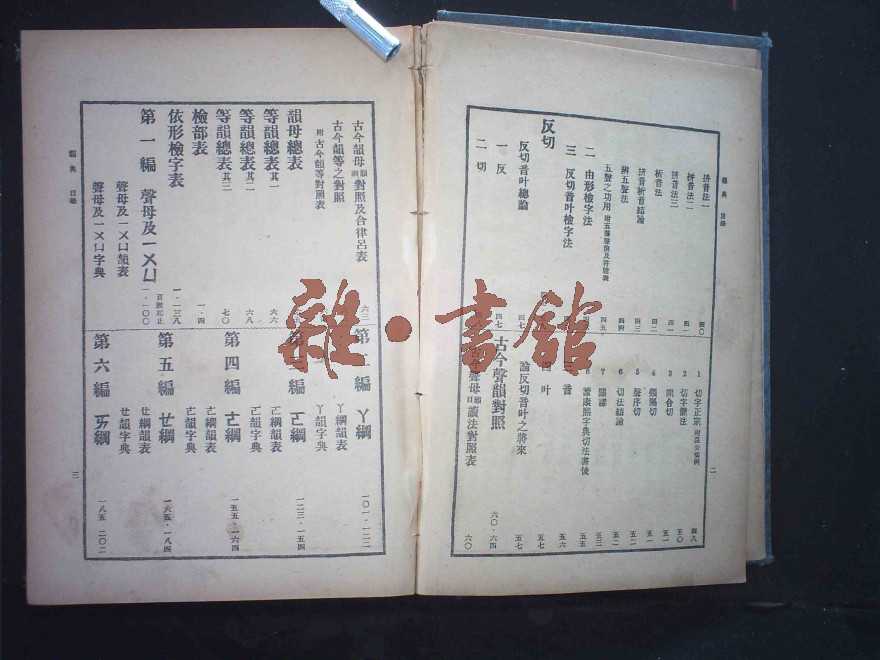 韻典 目錄
拼音法一 四〇
拼音法二 四一
拼音法三 四一
析音法 四二
拼音析音結論 四三
辨五聲法 四四
五聲之功用 四五
二 由形檢字法
三 反切音叶檢字法
反切
反切音叶總論 四七
一 反 四七
二 切
1 切字正宗 四八
2 切字簡法 五〇
3 開合切 五一
4 類隔切 五一
5 聲序切 五二
6 切法結論 五二
7 闢謬 五三
8 讀康熙字典切法書後 五五
三 音 五六
四 叶 五七
論反切音叶之將來 五七
古今聲韻對照 六〇・六四
古今聲母讀法對照表 六〇
二
古今韻母對照及合律呂表 六三
古今韻等之對照
附 古今韻等對照表
韻母總表
等韻總表其一 六六
等韻總表其二 六八
等韻總表其三 七〇
檢部表 一・四
依形檢字表 一・一三八
頁數起止
第一編 聲母及一ㄨㄩ 一・一〇〇
聲母及一ㄨㄩ韻表
聲母及一ㄨㄩ字典
第二編 ㄚ綱 一〇一・一二二
ㄚ綱韻表
ㄚ韻字典
第三編 ㄛ綱 一二三・一五四
ㄛ綱韻表
ㄛ韻字典
第四編 ㄜ綱 一五五・一六四
ㄜ綱韻表
ㄜ韻字典
第五編 ㄝ綱 一六五・一八四
ㄝ綱韻表
ㄝ韻字典
第六編 ㄞ綱 一八五・二〇二
韻典 目錄
三
雜・書館